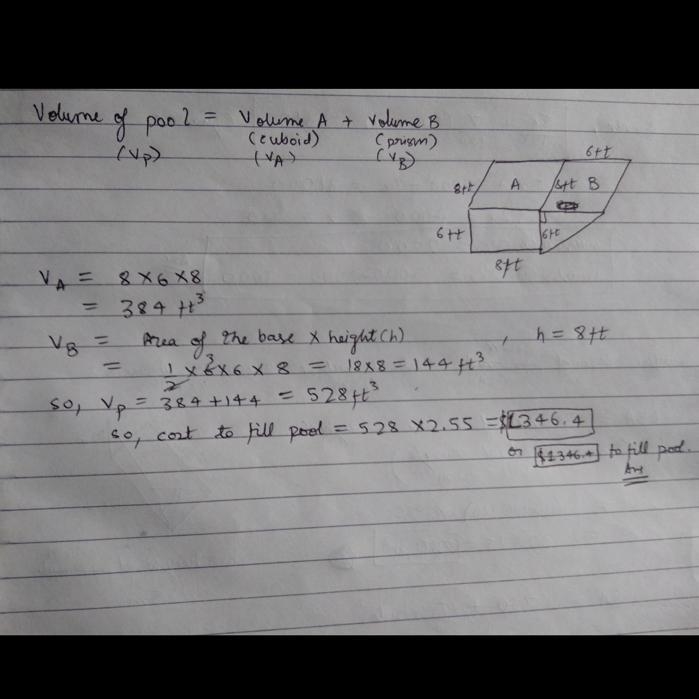 Volume of pool = Volume A + Volume B
(Vp) (cuboid) (prism)
(VA) (VB)
6ft
8ft A 8ft B
6ft 6ft
8ft
VA = 8 × 6 × 8
= 384 ft³
VB = Area of the base × height (h) , h = 8ft
= 1/2 × 6 3 × 6 × 8 = 18×8 = 144 ft³
so, Vp = 384 + 144 = 528 ft³
so, cost to fill pool = 528 × 2.55 = $1346.4
or $1346.4 to fill pool.
Ans